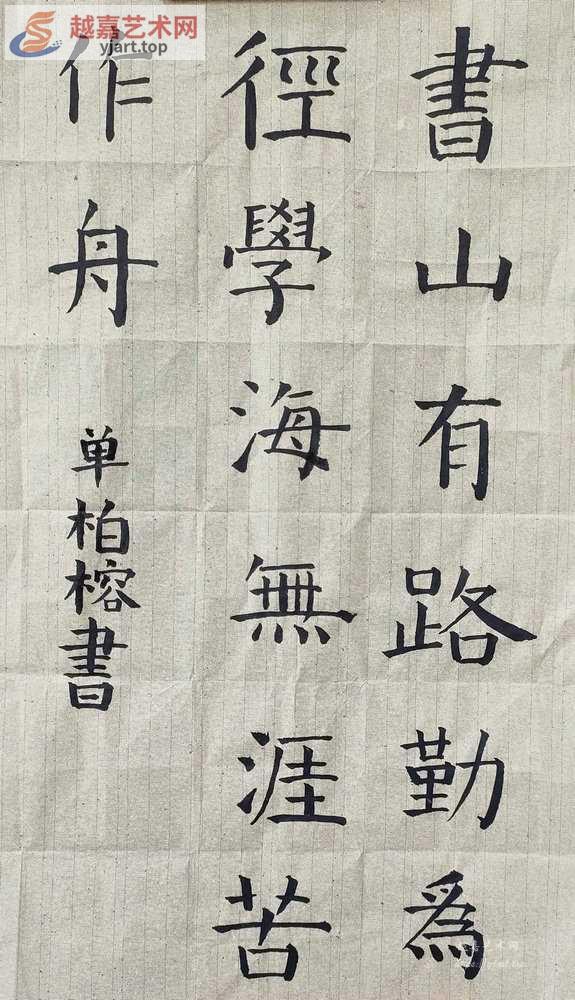 書山有路勤為
徑學海無涯苦
作舟
单柏榕書
越嘉艺术网
yjart.top